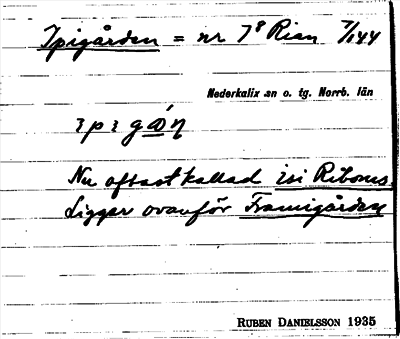 Ypigården = nr 7⁸ Rian 7/144
Nederkalix sn o. tg. Norrb. län
Nu oftast kallad isi Riboms
Ligger ovanför Framigården
RUBEN DANIELSSON 1935